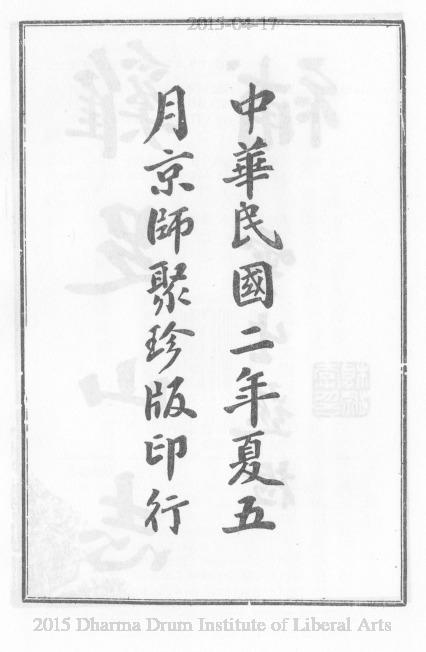 2015-04-17
中華民國二年夏五
月京師聚珍版印行
2015 Dharma Drum Institute of Liberal Arts